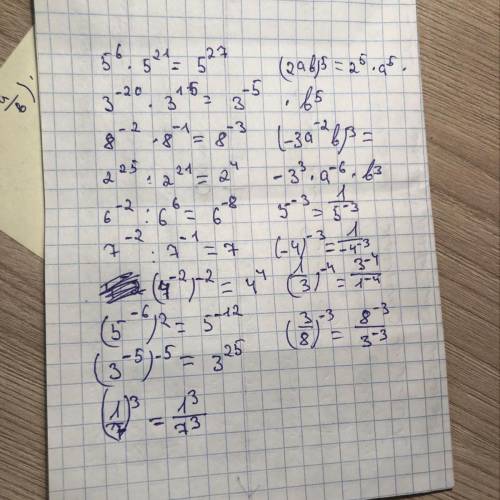 5^6 · 5^21 = 5^27
3^-20 · 3^15 = 3^-5
8^-2 · 8^-1 = 8^-3
2^25 : 2^21 = 2^4
6^-2 : 6^6 = 6^-8
7^-2 : 7^-1 = 7
(4^-2)^-2 = 4^4
(5^-6)^2 = 5^-12
(3^-5)^-5 = 3^25
(1/7)^3 = 1^3/7^3
(2ab)^5 = 2^5 · a^5 ·
· b^5
(-3a^-2 b)^3 =
-3^3 · a^-6 · b^3
5^-3 = 1/5^-3
(-4)^-3 = 1/-4^-3
(1/3)^-4 = 3^-4/1^-4
(3/8)^-3 = 8^-3/3^-3